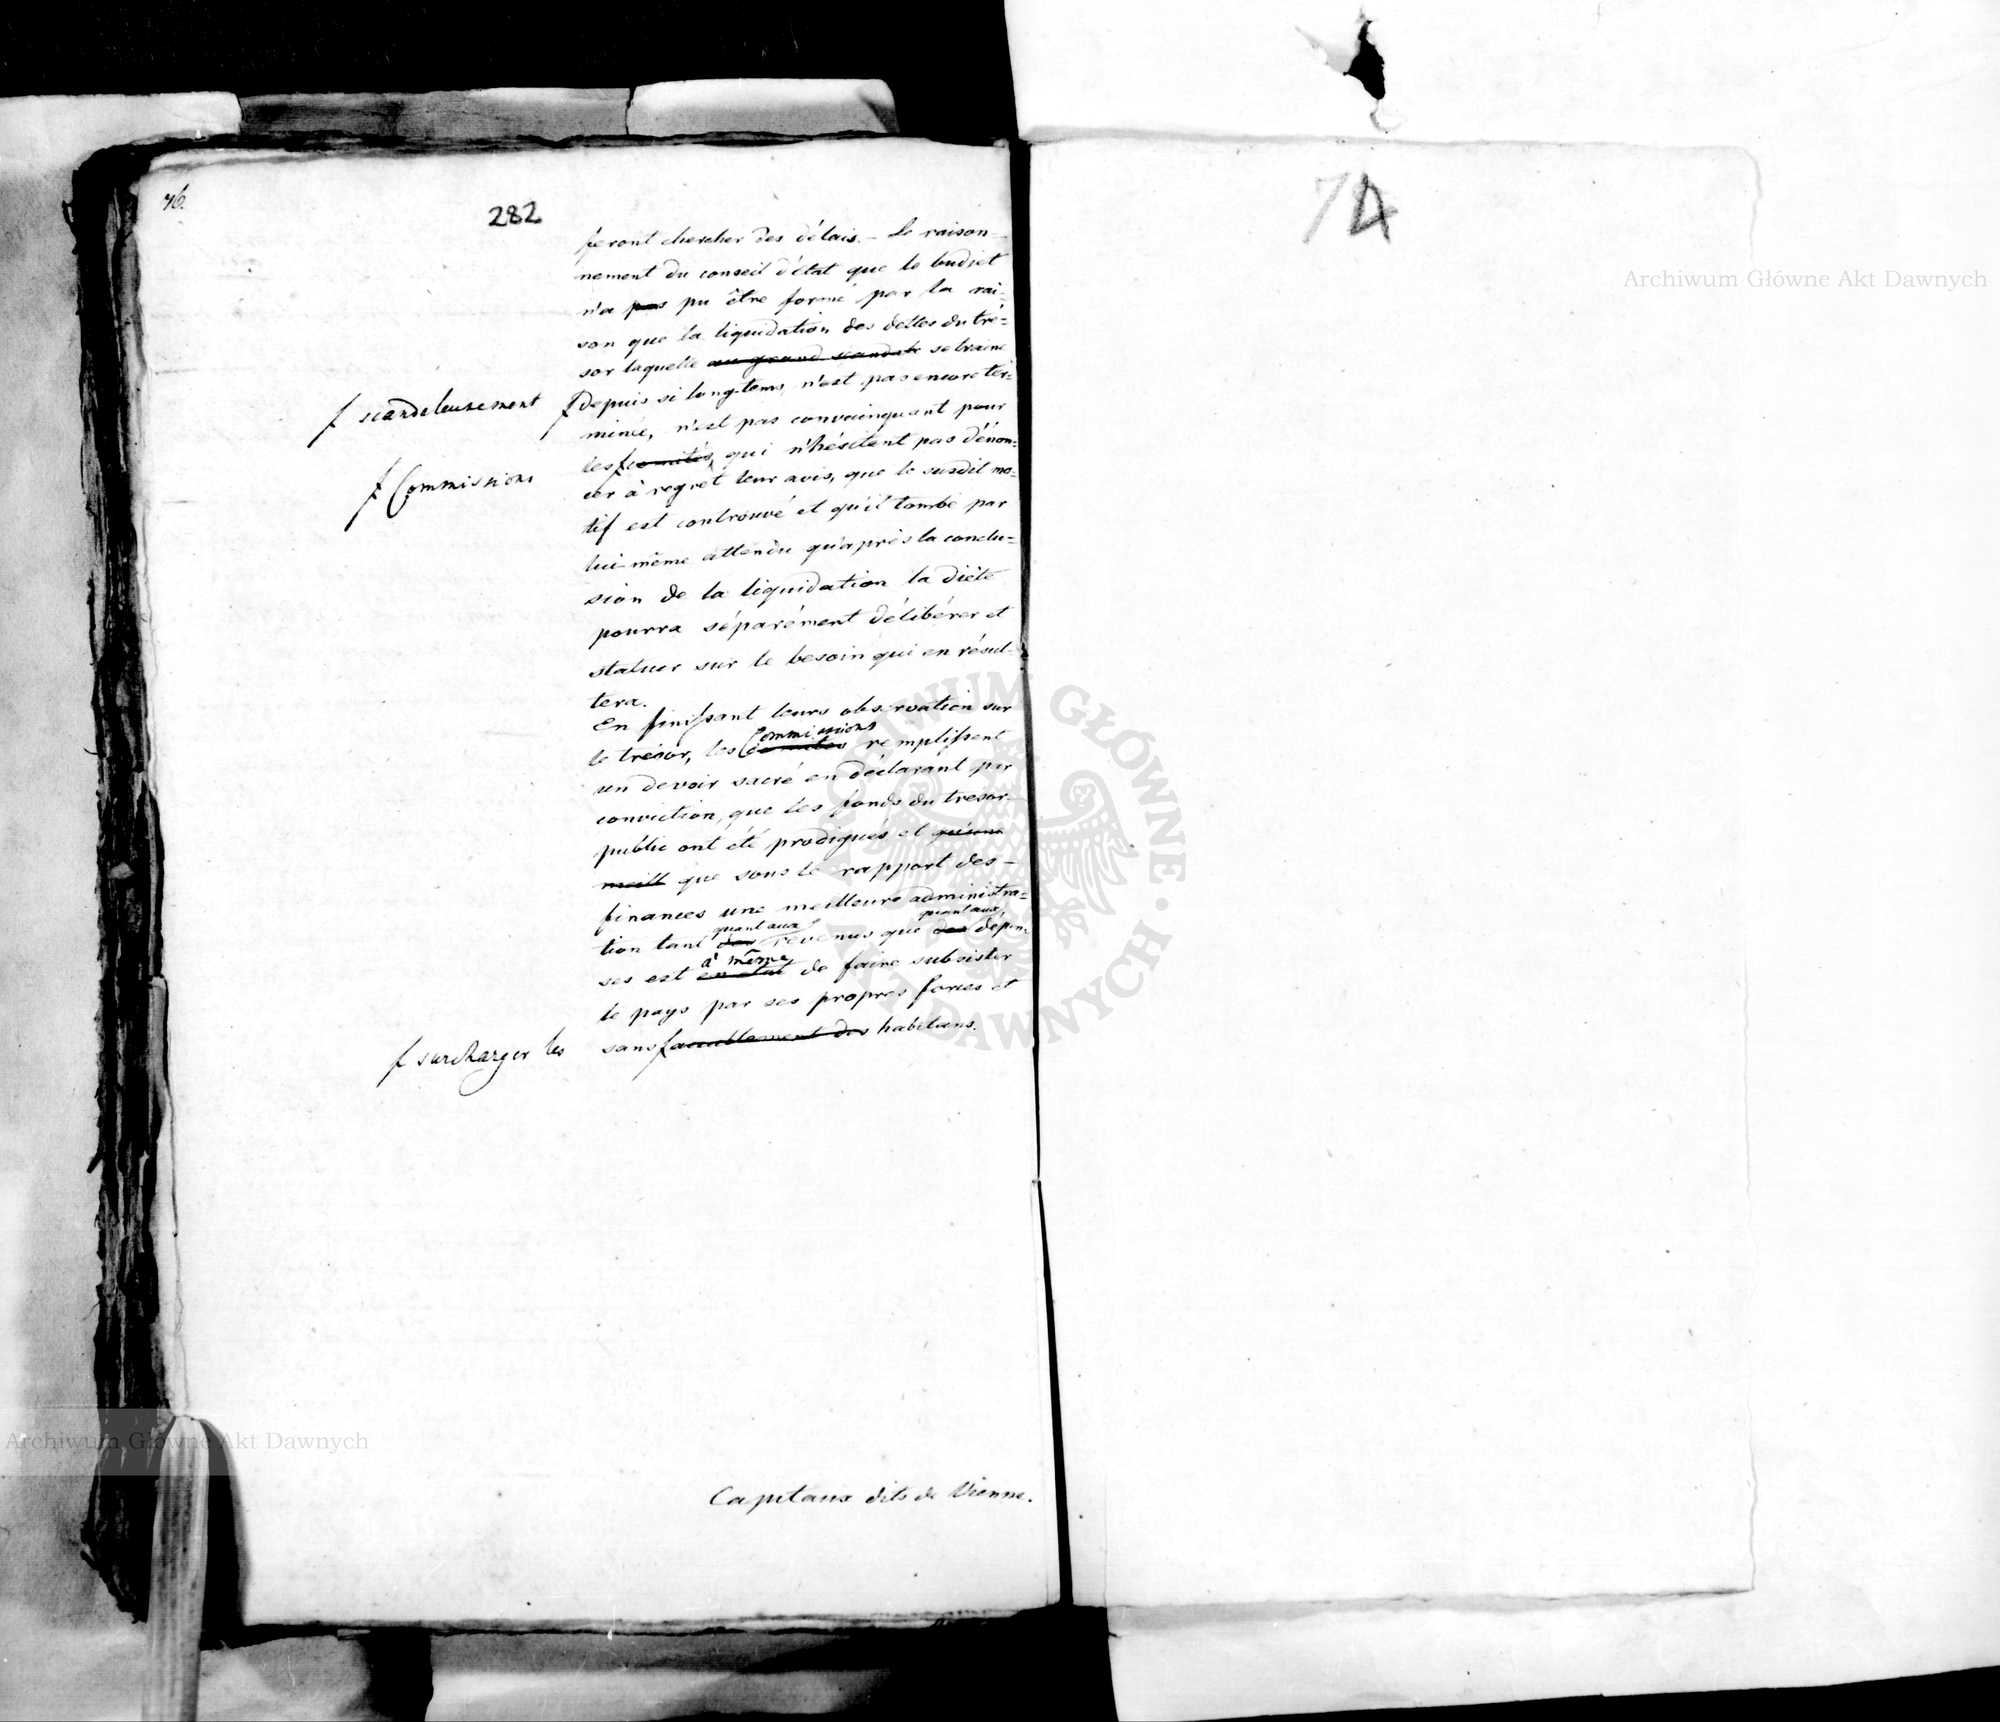 76.
282
feront chercher des délais. – Le raison-
nement du conseil d'état que le budjet
n'a pas pu être formé par la rai-
son que la liquidation des dettes du tré-
sor laquelle au grand scandale se traine
ƒ scandeleusement
ƒ depuis si long-tems, n'est pas encore ter-
minée, n'est pas convainquant pour
ƒ Commissions
les ƒ comités, qui n'hésitent pas d'énon-
cer à regret leur avis, que le susdit mo-
tif est controuvé et qu'il tombe par
lui-même attendu qu'après la conclu-
sion de la liquidation la diète
pourra séparément délibérer et
statuer sur le besoin qui en résul-
tera.
En finissant leurs observation sur
Commissions
le trésor, les comites remplissent
un devoir sacré en déclarant par
conviction, que les fonds du trésor
public ont été prodigués et qu'une
meill que sous le rapport des
finances une meilleure administra-
quant aux quant aux
tion tant des revenus que des dépen-
à même
ses est en état de faire subsister
le pays par ses propres forces et
ƒ surcharger les
sans ƒ accablement des habitans.
Capitaux dits de Vienne.
74
Archiwum Główne Akt Dawnych
ARCHIWUM GŁÓWNE AKT DAWNYCH
Archiwum Główne Akt Dawnych